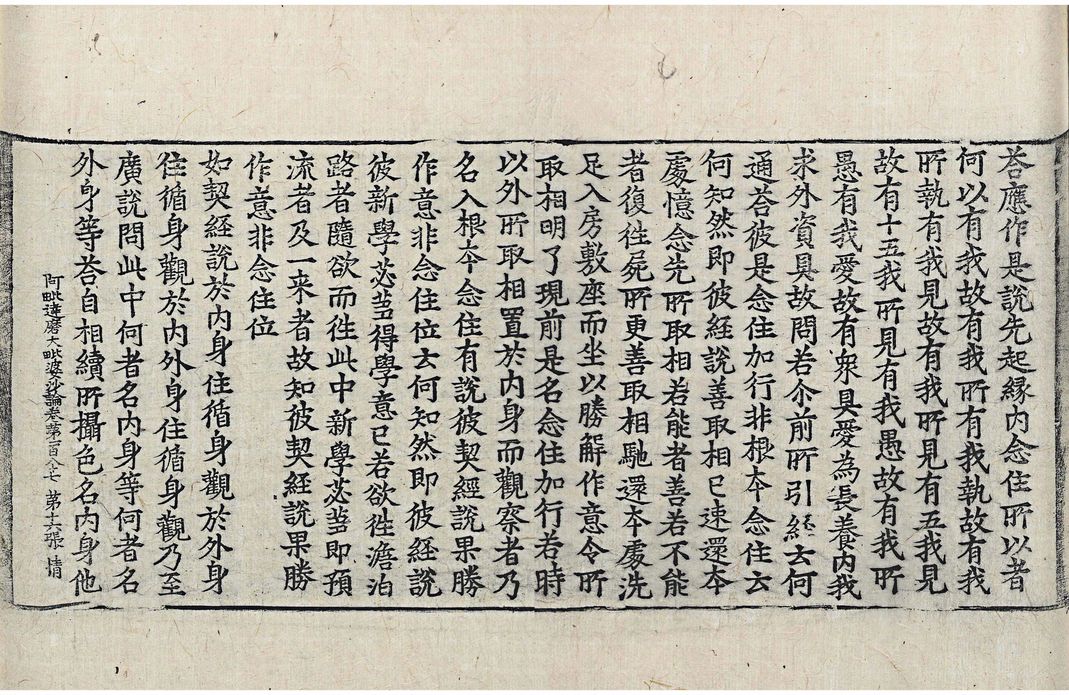 荅應作是說先起緣內念住所以者
何以有我故有我所有我執故有我
所執有我見故有我所見有五我見
故有十五我所見有我愚故有我所
愚有我愛故有衆具愛為長養內我
求外資具故問若尒前所引経去何
通荅彼是念住加行非根夲念住云
何知然即彼経說善取相已速還夲
處憶念先所取相若能者善若不能
者復徃屍所更善取相馳還夲處洗
足入房敷座而坐以勝解作意令所
取相明了現前是名念住加行若時
以外所取相置於內身而觀察者乃
名入根夲念住有說彼契經說果勝
作意非念住位云何知然即彼経說
彼新學苾蒭得學意已若欲徃澹泊
路者隨欲而徃此中新學苾蒭即預
流者及一来者故知彼契経說果勝
作意非念住位
如契経說於內身住循身觀於外身
住循身觀於內外身住循身觀乃至
廣說問此中何者名內身等何者名
外身等荅自相續所攝色名內身他
阿毗達磨大毗婆沙論卷第一百八十七 第十六張 情